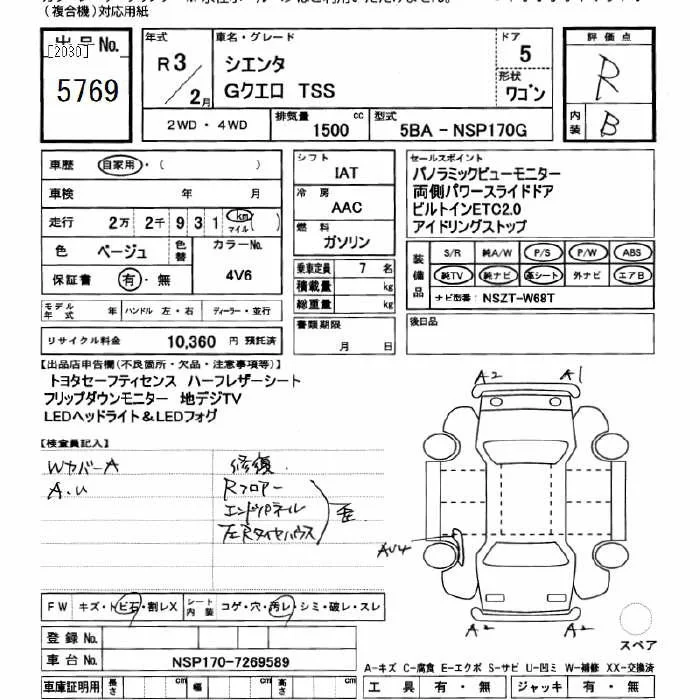 (複合機)対応用紙
出品No.
[2030]
5769
年式
R3/2月
車名・グレード
シエンタ
Gクエロ TSS
ドア
5
形状
ワゴン
評価点
R
内装
B
2WD・4WD
排気量
1500
cc
型式
5BA - NSP170G
車歴
自家用・( )
車検 年 月
走行 2万 2千 9 3 1 km マイル ( )
色 ベージュ
色替
カラーNo.
4V6
保証書 有・無
モデル年式 年
ハンドル 左・右
ディーラー・並行
リサイクル料金 10,360 円 預託済
シフト
IAT
冷房
AAC
燃料
ガソリン
乗車定員 7 名
積載量 kg
総重量 kg
書類期限
月 日
セールスポイント
パノラミックビューモニター
両側パワースライドドア
ビルトインETC2.0
アイドリングストップ
装備品
S/R 純A/W P/S P/W ABS
純TV 純ナビ 革シート 外ナビ エアB
ナビ型番: NSZT-W68T
後日品
【出品店申告欄(不良箇所・欠品・注意事項等)】
トヨタセーフティセンス ハーフレザーシート
フリップダウンモニター 地デジTV
LEDヘッドライト&LEDフォグ
【検査員記入】
Wカバー A
A.U
修復
Rフロアー
エンドパネル
左Rタイヤハウス
歪
A2
A1
AU4
A2
A2
スペア
FW キズ・トビ石・割レX
シート内装 コゲ・穴・汚レ・シミ・破レ・スレ
登録No.
車台No. NSP170-7269589
車庫証明用 長さ cm 幅 cm 高さ cm
A-キズ C-腐食 E-エクボ S-サビ U-凹ミ W-補修 XX-交換済
工具 有・無 ジャッキ 有・無